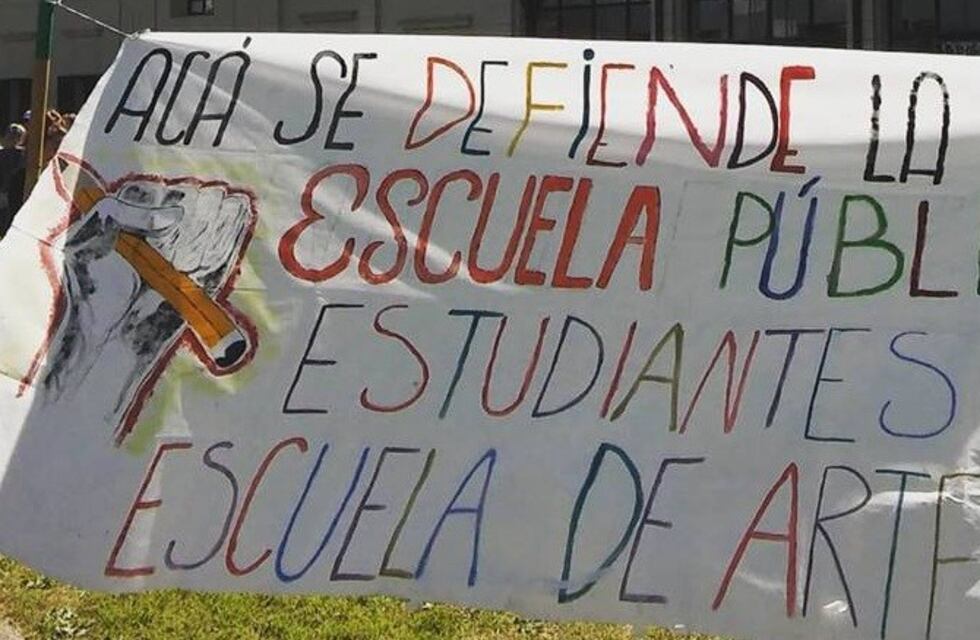 ACÁ SE DEFiENDE LA
ESCUELA PÚBLI
ESTUDIANTES
ESCUELA DE ARTE